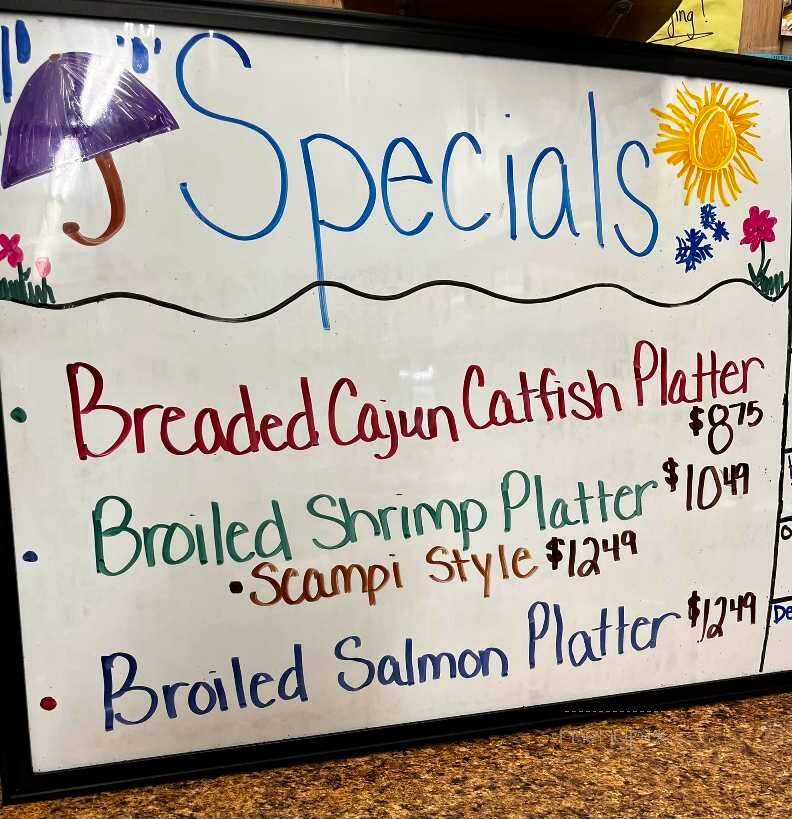 ging!
Specials
Breaded Cajun Catfish Platter
$8.75
Broiled Shrimp Platter $10.49
• Scampi Style $12.49
Broiled Salmon Platter $12.49
De
menupix